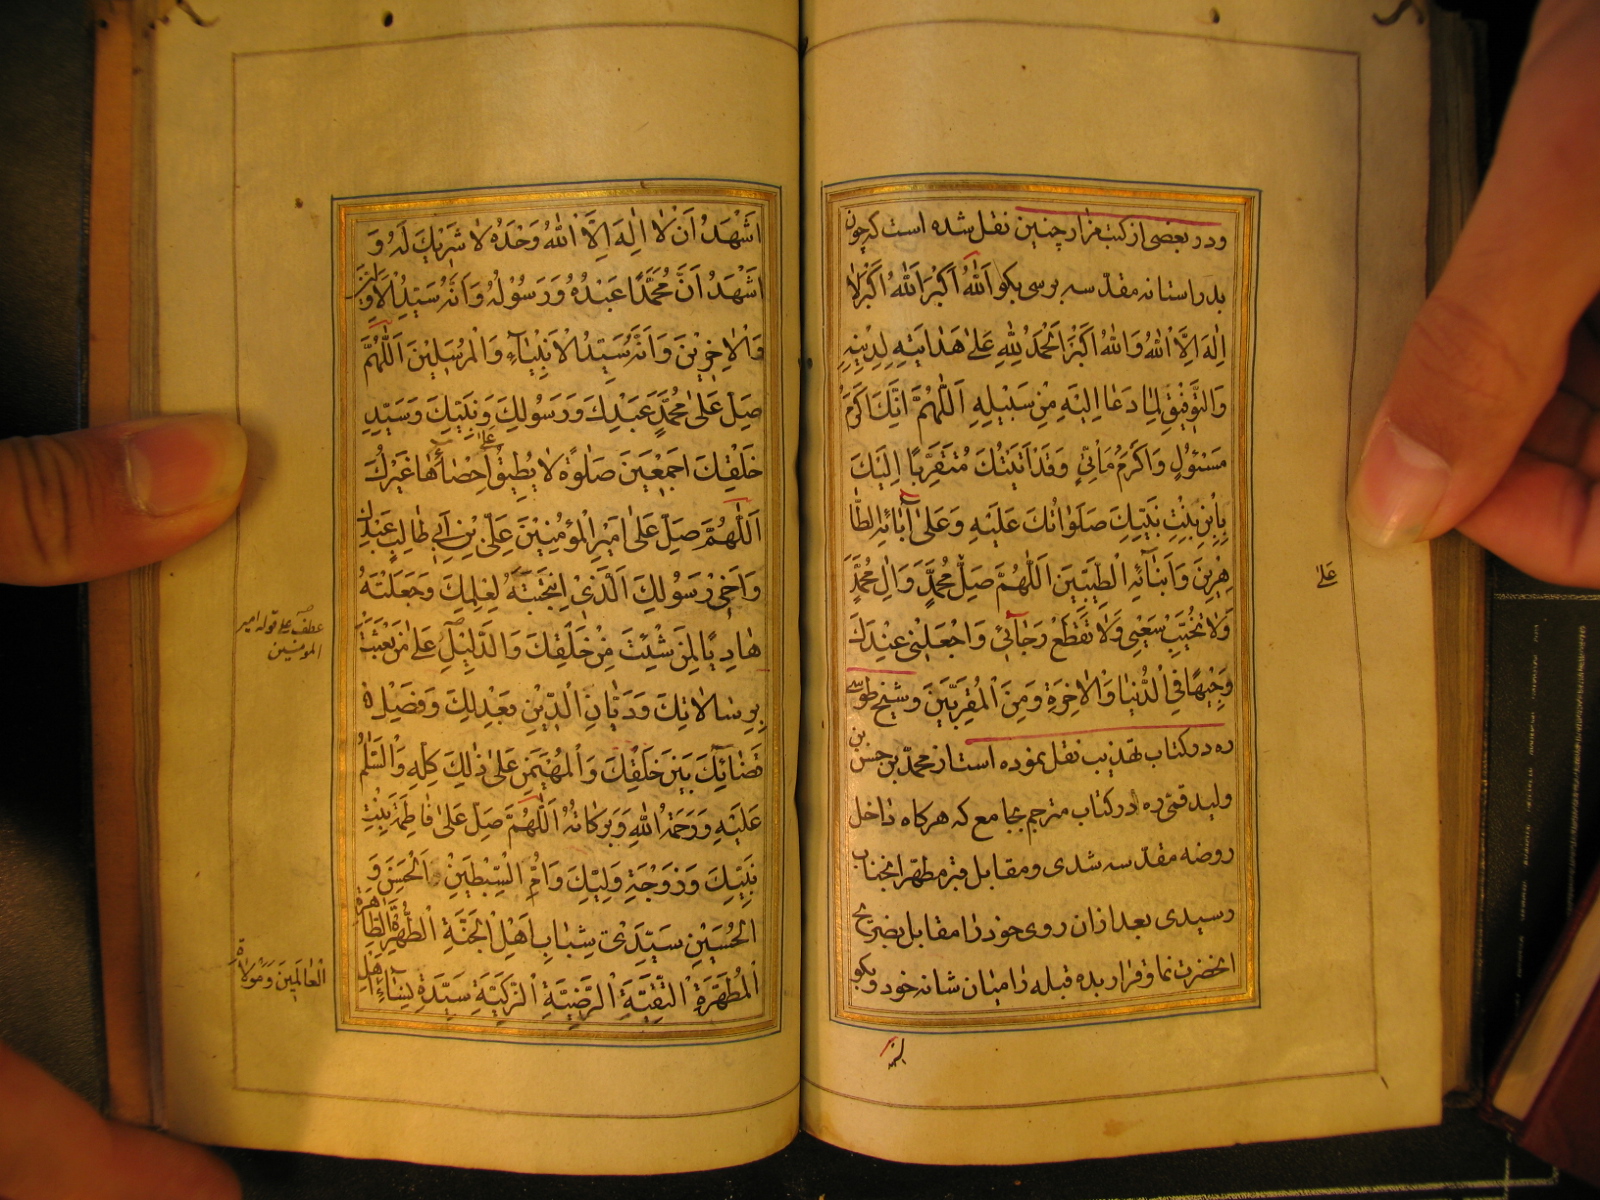 ودر بعضی از کتب مزار چنین نقل شده است که چون
بدر استانه مقدّسه برسی بکو اَللهُ اَکْبَرُ اَللهُ اَکْبَرُ لٰا
اِلٰهَ اِلَّا اللهُ وَاللهُ اَکْبَرُ اَلْحَمْدُ لِلّٰهِ عَلیٰ هَدٰایَتِهِ لِدِیْنِهِ
وَالتَّوفِیْقِ لِمٰا دَعٰا اِلَیْهِ مِنْ سَبِیْلِهِ اَللّٰهُمَّ اِنَّکَ اَکْرَمُ
مَسْئُولٍ وَاَکْرَمُ مَأْتِیٍّ وَقَدْ اَتَیْتُکَ مُتَقَرِّبًا اِلَیْکَ
بِاِبْنِ بِنْتِ نَبِیِّکَ صَلَوٰاتُکَ عَلَیْهِ وَعَلیٰ اٰبٰائِهِ الطّٰا
هِرِینَ وَاَبْنٰآئِهِ الطَّیِّبینَ اَللّٰهُمَّ صَلِّ مُحَمَّدٍ وَاٰلِ مُحَمَّدٍ
علیٰ
وَلٰا تُخَیِّبْ سَعْیِی وَلٰا تَقْطَعْ رَجٰائِی وَاجْعَلْنِی عِنْدَکَ
وَجِیْهًا فِی الدُّنْیٰا وَالْاٰخِرَةِ وَمِنَ الْمُقَرَّبِینَ وشیخ طوسی
ره در کتاب تهذیب نقل نموده است از محمّد بن حسن بن
ولید قمی ره در کتاب مترجم بجامع که هرکاه داخل
روضه مقدّسه شدی ومقابل قبر مطهر انجناب
رسیدی بعد ازان روی خود را مقابل بضریح
انحضرت نما وقرار بده قبله را میان شانه خود وبکو
اَشْهَدُ اَنْ لٰا اِلٰهَ اِلَّا اللهُ وَحْدَهُ لٰا شَرِیْکَ لَهُ وَ
اَشْهَدُ اَنَّ مُحَمَّدًا عَبْدُهُ وَرَسُوْلُهُ وَاَنَّهُ سَیِّدُ الْاَوَّلِیْنَ
وَالْاٰخِرِیْنَ وَاَنَّهُ سَیِّدُ الْاَنْبِیٰآءِ وَالْمُرْسَلِیْنَ اَللّٰهُمَّ
صَلِّ عَلیٰ مُحَمَّدٍ عَبْدِکَ وَرَسُولِکَ وَنَبِیِّکَ وَسَیِّدِ
خَلْقِکَ اَجْمَعِیْنَ صَلٰوةً لٰا یُطِیْقُ عَلیٰ اِحْصٰآئِهٰا غَیْرُکَ
اَللّٰهُمَّ صَلِّ عَلیٰ اَمِیْرِ الْمُؤْمِنِیْنَ عَلِیِّ بْنِ اَبِی طٰالِبٍ عَبْدِکَ
وَاَخِی رَسُوْلِکَ اَلَّذِیْ اِنْتَجَبْتَهُ لِعِلْمِکَ وَجَعَلْتَهُ
هٰادِیًا لِمَنْ شِئْتَ مِنْ خَلْقِکَ وَالدَّلِیْلِ عَلیٰ مَنْ بَعَثْتَ
عطف علی قوله امیر
المومنین
بِرِسٰالٰاتِکَ وَدَیّٰانِ الدِّیْنِ بِعَدْلِکَ وَفَصْلِ
قَضٰائِکَ بَیْنَ خَلْقِکَ وَالْمُهَیْمِنِ عَلیٰ ذٰلِکَ کُلِّهِ وَالسَّلٰمُ
عَلَیْهِ وَرَحْمَةُ اللهِ وَبَرَکٰاتُهُ اَللّٰهُمَّ صَلِّ عَلیٰ فٰاطِمَةَ بِنْتِ
نَبِیِّکَ وَزَوْجَةِ وَلِیِّکَ وَاُمِّ السِّبْطَیْنِ اَلْحَسَنِ وَ
الْحُسَیْنِ سَیِّدَیْ شَبٰابِ اَهْلِ الْجَنَّةِ الطُّهْرَةِ الطّٰاهِرَةِ
الْمُطَهَّرَةِ التَّقِیَّةِ الرَّضِیَّةِ الزَّکِیَّةِ سَیِّدَةِ نِسٰآءِ اَهْلِ
الْعٰالَمِیْنَ وَمَوْلٰاةِ